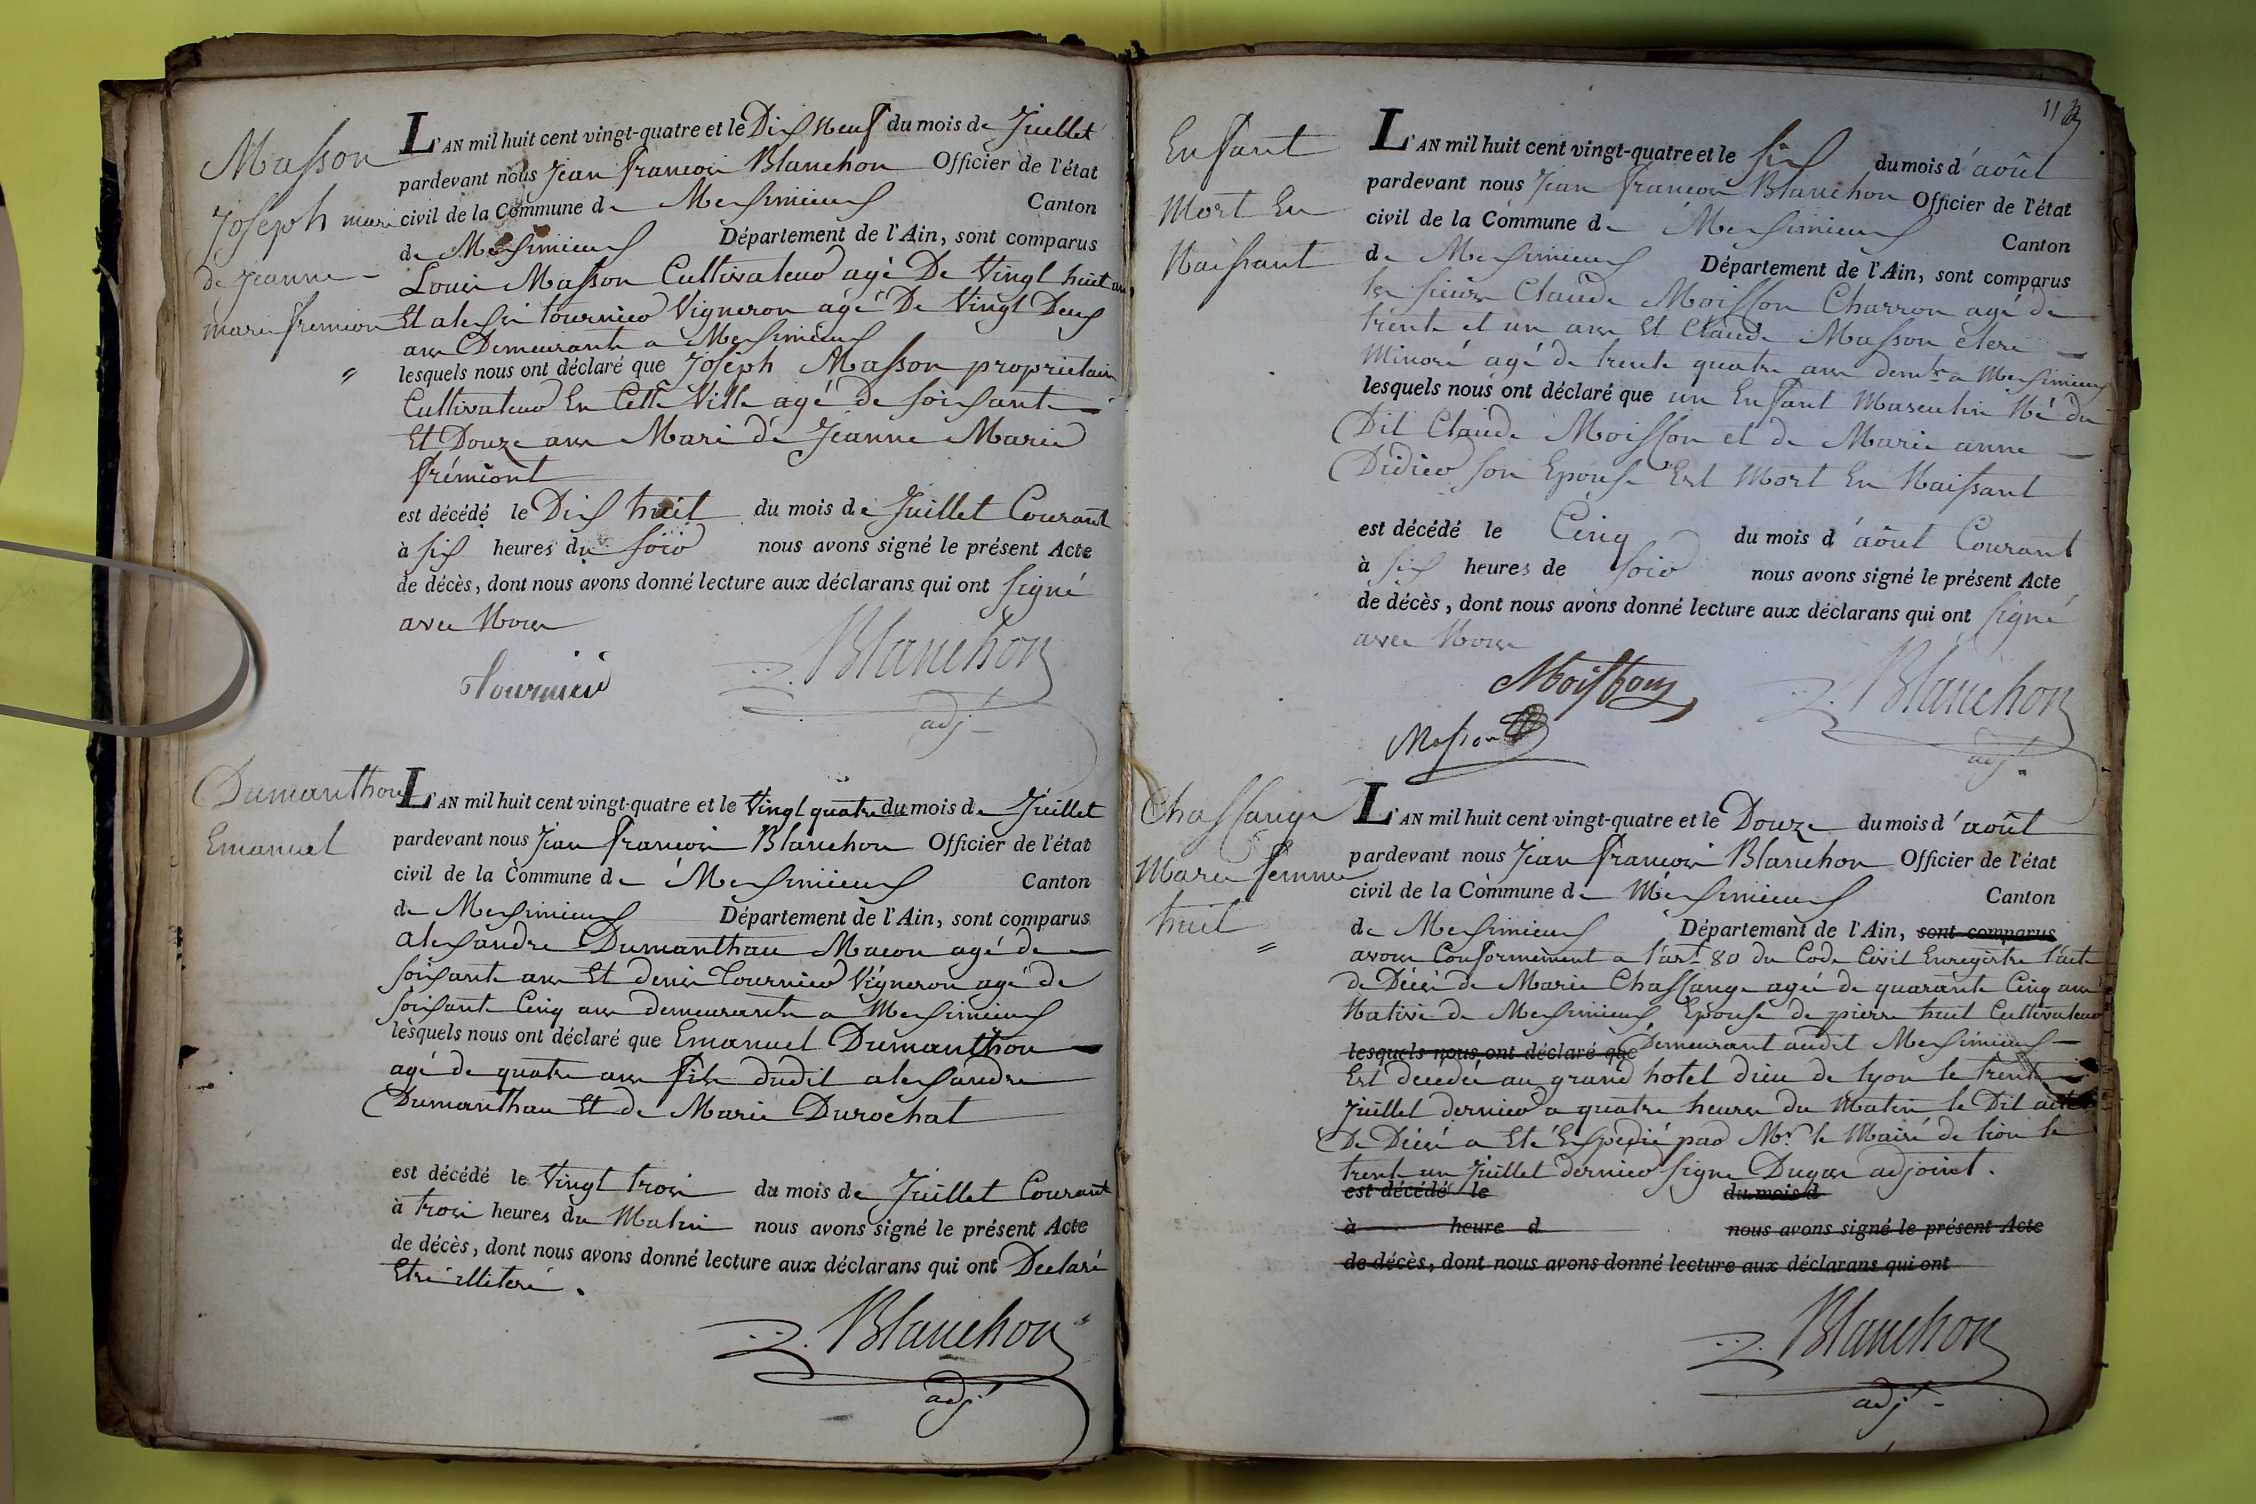 Masson
Joseph mari
de Jeanne
marie fremion
L'AN mil huit cent vingt-quatre et le Dix Neuf du mois de Juillet
pardevant nous Jean françois Blanchon Officier de l'état
civil de la Commune de Meximieux Canton
de Meximieux Département de l'Ain, sont comparus
Louis Masson Cultivateur agé De Vingt huit ans
Et alexis tournier Vigneron agé De Vingt Deux
ans Demeurants a Meximieux
lesquels nous ont déclaré que Joseph Masson proprietaire
Cultivateur En Cette Ville agé de soixante
Et Douze ans Mari de Jeanne Marie
frémiont
est décédé le Dix huit du mois de Juillet Courant
à six heures du soir nous avons signé le présent Acte
de décès, dont nous avons donné lecture aux déclarans qui ont signé
avec Nous
Tournier Blanchon
adj
Dumanthou
Emanuel
L'AN mil huit cent vingt-quatre et le Vingt quatre du mois de Juillet
pardevant nous Jean françois Blanchon Officier de l'état
civil de la Commune de Meximieux Canton
de Meximieux Département de l'Ain, sont comparus
alexandre Dumanthau Macon agé de
soixante ans Et denis tournier Vigneron agé de
soixante Cinq ans demeurants a Meximieux
lesquels nous ont déclaré que Emanuel Dumanthou
agé de quatre ans fils dudit alexandre
Dumanthau Et de Marie Durochat
est décédé le Vingt trois du mois de Juillet Courant
à trois heures du Matin nous avons signé le présent Acte
de décès, dont nous avons donné lecture aux déclarans qui ont Declaré
Etre illiteré.
Blanchon
adj
Enfant
Mort En
Naissant
L'AN mil huit cent vingt-quatre et le six du mois d'août
pardevant nous Jean françois Blanchon Officier de l'état
civil de la Commune de Meximieux Canton
de Meximieux Département de l'Ain, sont comparus
les sieurs Claude Moisson Charron agé de
trente et un ans Et Claude Masson clerc
Minoré agé de trente quatre ans demts a Meximieux
lesquels nous ont déclaré que un Enfant Masculin Né du
Dit Claude Moisson et de Marie anne
Didier son Epouse Est Mort En Naissant
est décédé le Cinq du mois d'août Courant
à six heures de soir nous avons signé le présent Acte
de décès, dont nous avons donné lecture aux déclarans qui ont signé
avec Nous
Moisson Blanchon
Masson adj.
Chassange
Marie femme
huit
L'AN mil huit cent vingt-quatre et le Douze du mois d'août
pardevant nous Jean françois Blanchon Officier de l'état
civil de la Commune de Meximieux Canton
de Meximieux Département de l'Ain, sont comparus
avons Conformement a l'art 80 du Code Civil Enregistre l'acte
de Décès de Marie Chassange agée de quarante Cinq ans
Native de Meximieux Epouse de pierre huit Cultivateur
lesquels nous ont déclaré que Demeurant audit Meximieux
Est decedée au grand hotel dieu de lyon le trente
Juillet dernier a quatre heures du Matin le Dit acte
De Décès a Eté Expedié par Mr le Maire de lion le
trente un Juillet dernier signe Dugas adjoint.
est décédé le du mois d
à heure d nous avons signé le présent Acte
de décès, dont nous avons donné lecture aux déclarans qui ont
Blanchon
adj